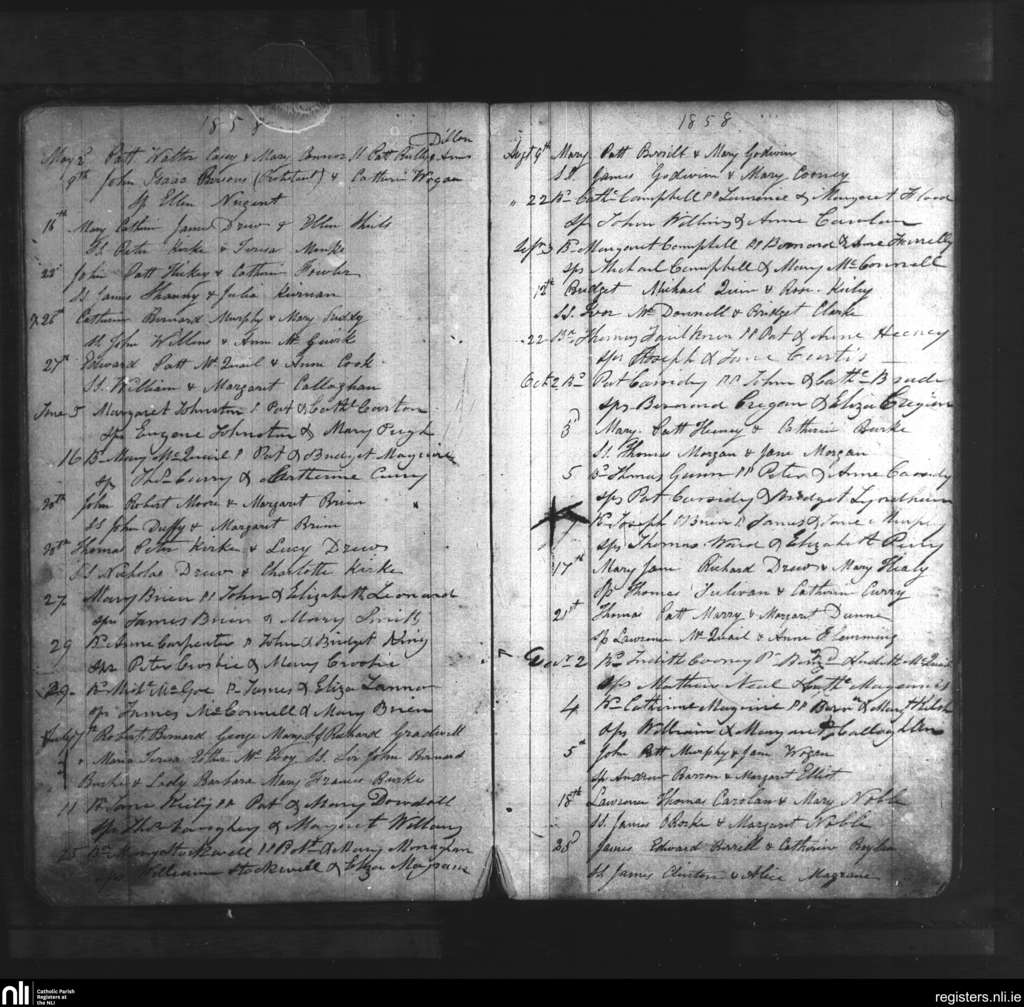 1858
Dillon
May 2 Patt Walter Casey & Mary Connor Patt Reilly & Anne
9th John Isaac Parsons (Protestant) & Catherine Wogan
Sp Ellen Nugent
16th Mary Cathrin James Drew & Ellen Shiels
Ss Peter Kirke & Teresa
23 John Patt Hickey & Catherin Fowler
Ss James & Julia Kiernan
26th Catherin Bernard Murphy & Mary Fuddy
Ss John & Ann Mc
27th Edward Patt Mc Quail & Anne Cook
Ss William & Margaret Callaghan
June 5 Margaret Johnston P Pat & Cath Carton
Sps Eugene Johnston & Mary Pugh
16 Bn Mary McQuail P Pat & Bridget Maguire
sp Thos Curry & Catherine Curry
20th John Robert Moore & Margaret Brien
SS John Duffy & Margaret Brien
20th Thomas Peter Kirke & Lucy Drew
SS Nicholas Drew & Charlotte Kirke
27 Mary Brien PP John & Elizabeth Leonard
sps James Brien & Mary Smith
29 Bn Anne Carpenter P John & Bridget King
sps Peter Crosbie & Mary Crosbie
29 Bn McGoe P James & Eliza Lannon
sps James McConnell & Mary Brien
July 7th Robert Bernard George Mary Richard Gradwell
& Maria Teresa Ellen Mc Evoy SS. Sir John Bernard
Burke & Lady Barbara Mary Frances Burke
11 Bn Jane Keily PP Pat & Mary Dowdall
sps & Margaret
25 Bn Mary Stockwell PP & Mary Monaghan
sps William Stockwell & Eliza
1858
Augt 9th Mary Patt Birrill & Mary Godwin
SS James Godwin & Mary Cooney
" 22 Bn Cathe Campbell PP Lawrence & Margaret Flood
sps John & Anne
3 Bn Margaret Campbell PP Bernard & Anne
sps Michael Campbell & Mary McConnell
12th Bridget Michael Quin & Rose Keily
SS. Mc Donnell & Bridget Clarke
22 Bn Thomas Faulkner PP Pat & Anne Heeney
sps Joseph & Jane Curtis
Oct 2 Bn Pat Cassidy PP John & Cathe
sps Bernard Cregan & Eliza Cregan
3d Mary Patt Heeney & Catherin Burke
Ss. Thomas Morgan & Jane Morgan
5 Bn Thomas Gunn PP Peter & Anne Cassidy
sps Pat Cassidy & Bridget
Bn Joseph O'Brien P James & Jane Murphy
sps Thomas Ward & Elizabeth
17th Mary Jane Richard Drew & Mary Healy
Sp Thomas Sulivan & Catherin Curry
21st Thomas Patt Murry & Margaret Dunne
Sp Lawrence McQuail & Anne Flemming
Novr 2 Bn Judith Cooney P & Judith McQuail
sps Mathew Neal & Cathe
4 Bn Catherine Maguire PP Bernd & Mary
sps William & Margaret Callaghan
5th John Patt Murphy & Jane Wogan
Sp Andrew Barron & Margaret Elliot
18th Lawrence Thomas Carolan & Mary Noble
SS. James O'Rorke & Margaret Noble
28 James Edward Birrill & Catherin
SS James Clinton & Alice Magrane
nli Catholic Parish Registers at the NLI
registers.nli.ie